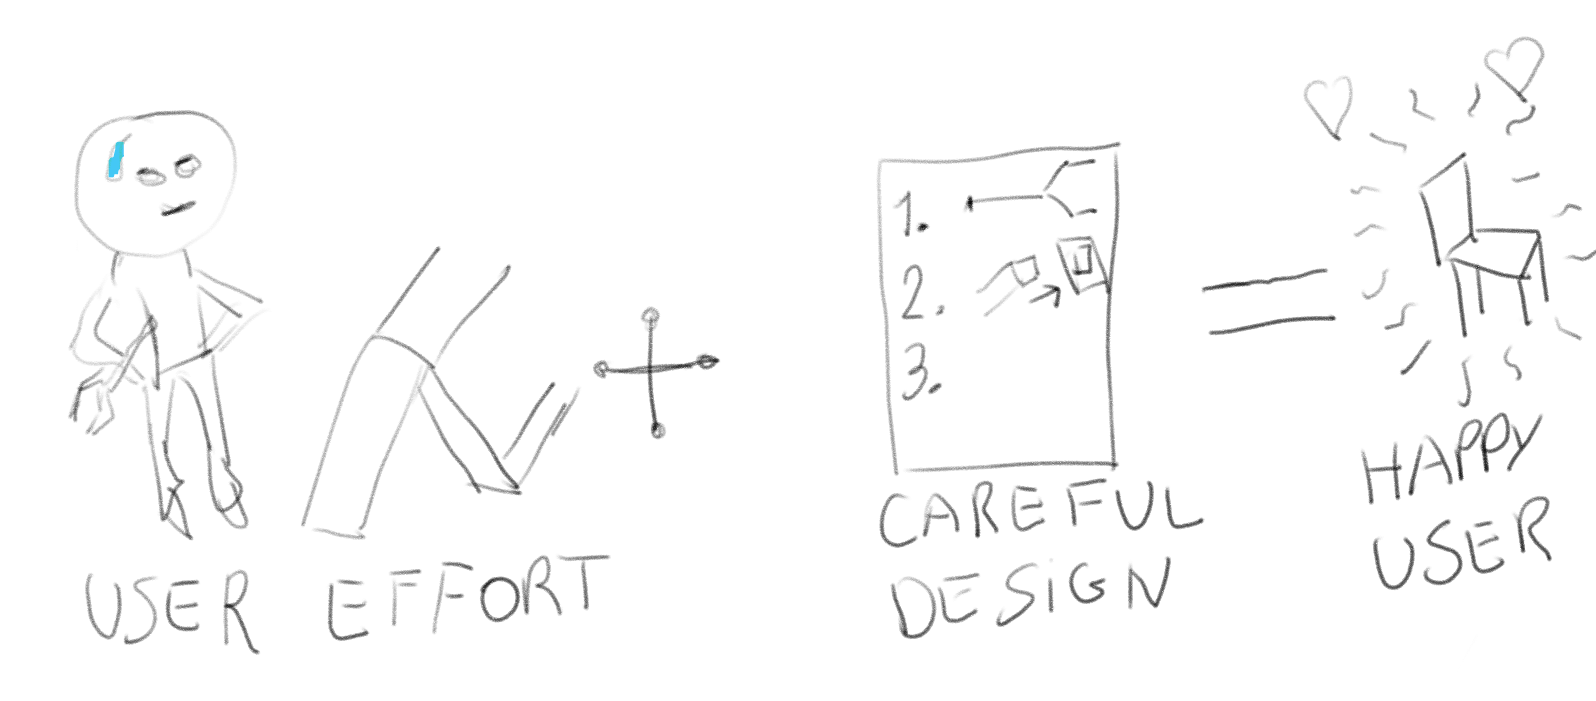 1.
2.
3.
USER EFFORT
CAREFUL
DESIGN
HAPPY
USER